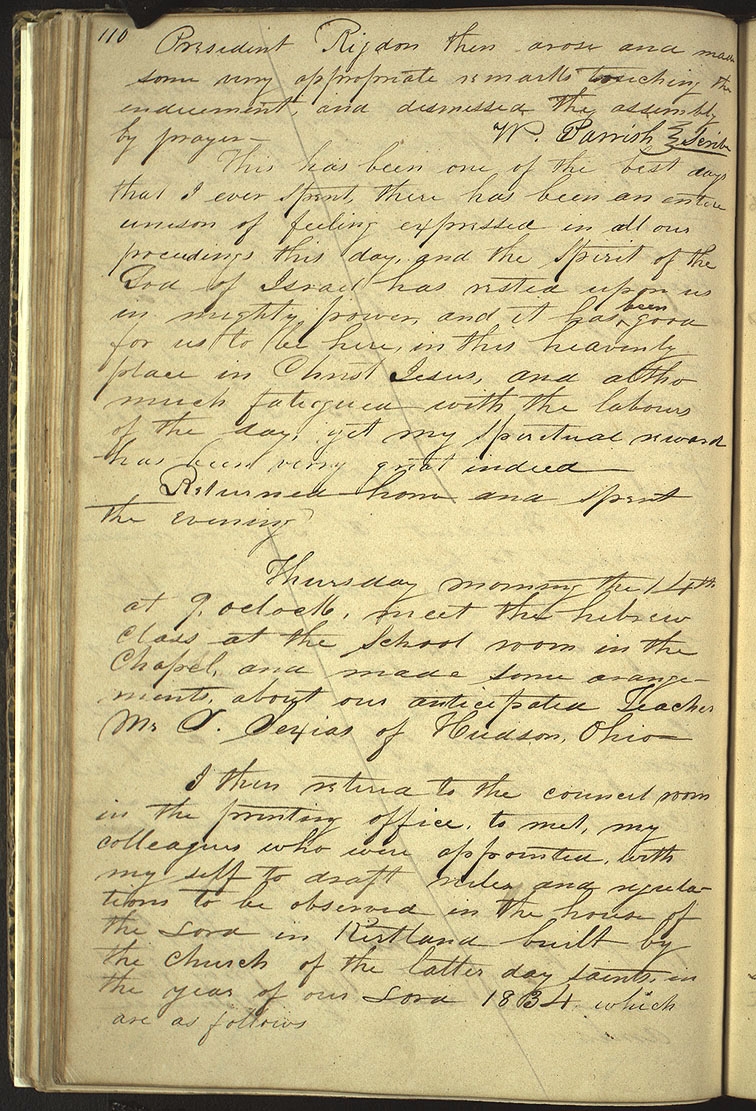 110
President Rigdon then arose and made
some very appropriate remarks touching the
enduement, and dismissed the assembly
by prayer— W. Parrish Scribe
This has been one of the best days
that I ever spent, there has been an entire
unison of feeling expressed in all our
proceedings this day, and the Spirit of the
God of Israel has rested upon us
in mighty power, and it has been good
for us to be here, in this heavenly
place in Christ Jesus, and altho
much fatiegued with the labours
of the day, yet my spiritual reward
has been very great indeed—
Returned home and spent
the evening
Thursday morning the 14th
at 9. oclock, meet the hebrew
class at the school room in the
Chapel, and made some arange-
ments, about our anticipated Teacher
Mr J. Sexias of Hudson, Ohio—
I then retired to the council room
in the printing office, to meet, my
colleagues who were appointed, with
my self to draft rules and regula-
tions to be observed in the house of
the Lord in Kirtland built by
the church of the latter day saints, in
the year of our Lord 1834 which
are as follows